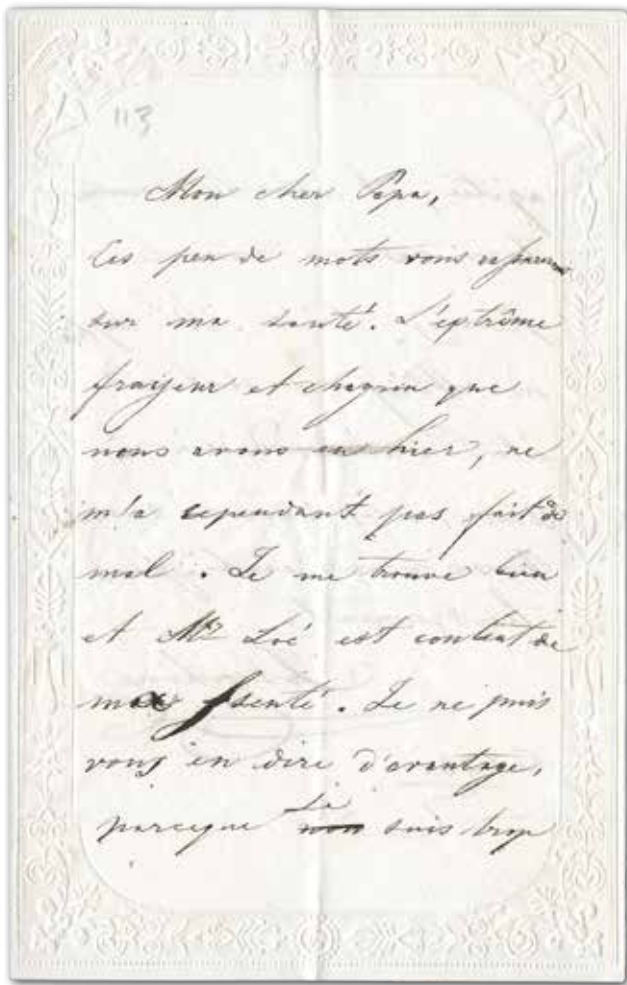 113
Mon cher Papa,
Ces peu de mots vous
sur ma santé. L'extrême
frayeur et chagrin que
nous avons eu hier, ne
m'a cependant pas fait de
mal. Je me trouve bien
et Mr Loé est content de
ma santé. Je ne puis
vous en dire d'avantage,
parceque suis trop